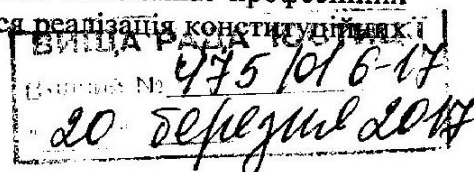 професійних
ся реалізація конституційних
ВИЩА РАДА
№ 475/0/6-17
20 березня 2017